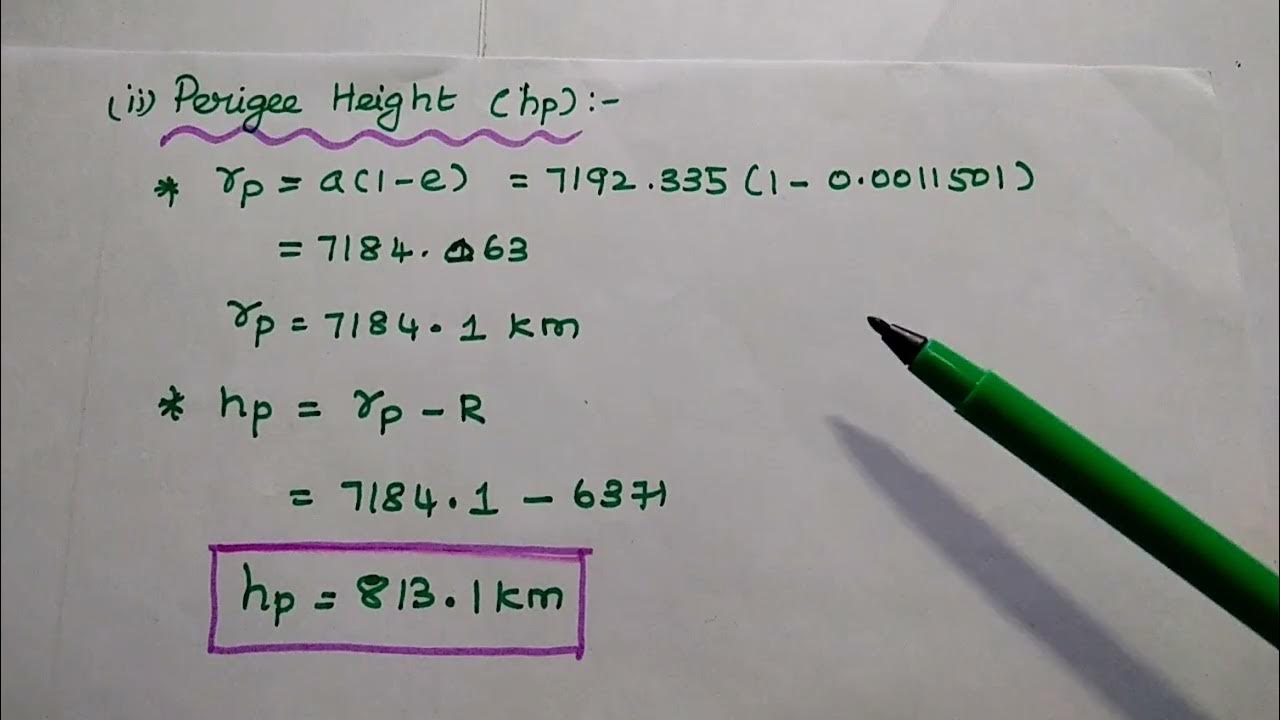 (ii) Perigee Height (hp):-
* rp = a(1-e) = 7192.335 (1 - 0.0011501)
= 7184.063
rp = 7184.1 km
* hp = rp - R
= 7184.1 - 6371
hp = 813.1 km